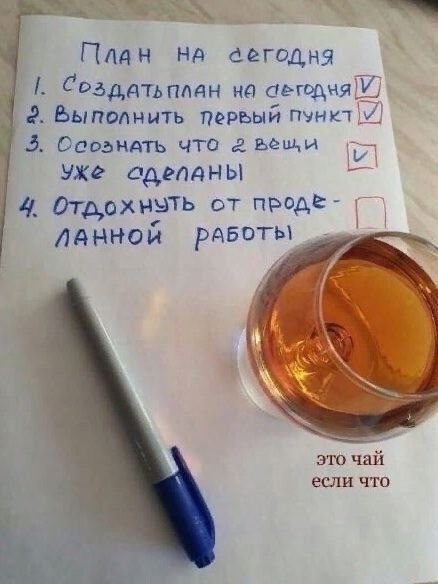 План на сегодня
1. Создать план на сегодня
2. Выполнить первый пункт
3. Осознать что 2 вещи
уже сделаны
4. Отдохнуть от проде-
ланной работы
это чай
если что